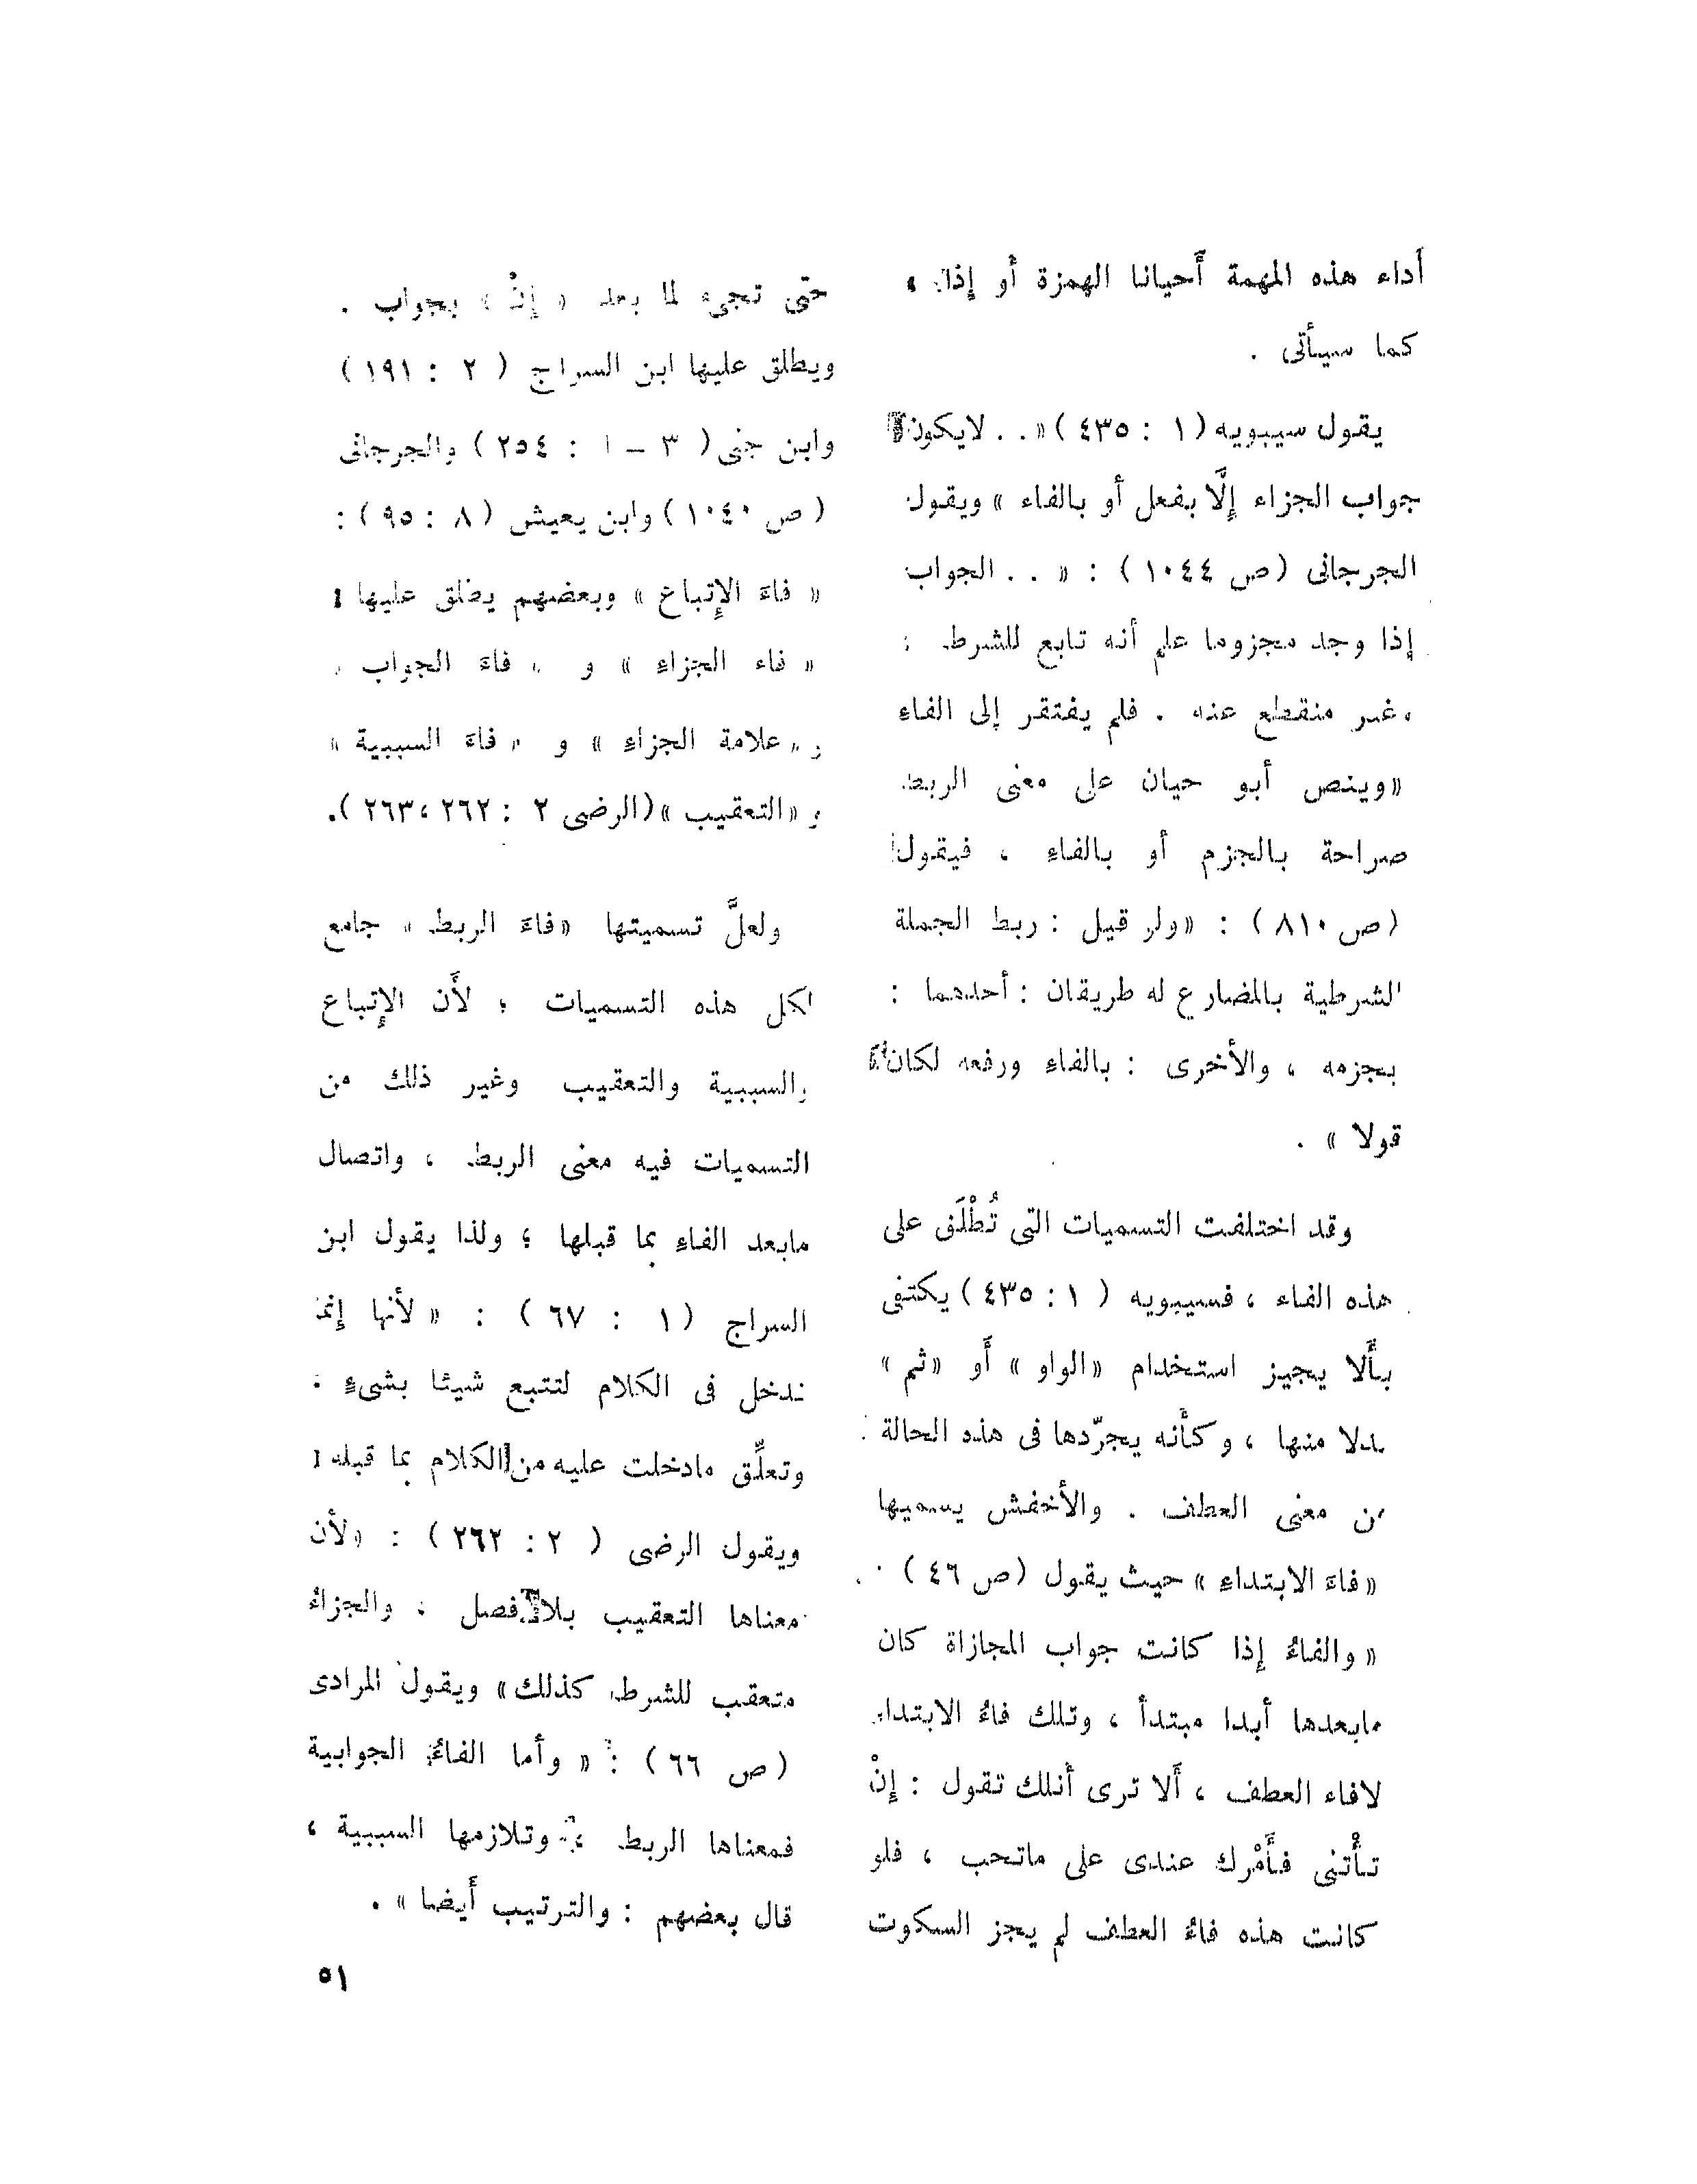 أداء هذه المهمة أحيانا الهمزة أو إذا ،
كما سيأتى .
يقول سيبويه (١ : ٤٣٥) « . . لايكون
جواب الجزاء إلَّا بفعل أو بالفاء » ويقول
الجرجانى (ص ١٠٤٤) : « . . الجواب
إذا وجد مجزوما علم أنه تابع للشرط
غير منقطع عنه . فلم يفتقر إلى الفاءِ
« وينص أبو حيان على معنى الربط
صراحة بالجزم أو بالفاءِ ، فيقول
(ص ٨١٠) : « ولو قيل : ربط الجملة
الشرطية بالمضارع له طريقان : أحدهما :
بجزمه ، والأخرى : بالفاءِ ورفعه لكان
قولا » .
وقد اختلفت التسميات التى تُطْلَق على
هذه الفاء ، فسيبويه (١ : ٤٣٥) يكتفى
بألا يجيز استخدام «الواو» أَو «ثم»
بدلا منها ، وكأنه يجرّدها فى هذه الحالة
من معنى العطف . والأخفش يسميها
« فاءَ الابتداءِ » حيث يقول (ص ٤٦)
« والفاءُ إذا كانت جواب المجازاة كان
مابعدها أبدا مبتدأ ، وتلك فاءُ الابتداء
لافاء العطف ، أَلا ترى أنلك تقول : إنْ
تأْتنى فأَمْرك عندى على ماتحب ، فلو
كانت هذه فاءُ العطف لم يجز السكوت
حتى تجىء لما بعد « إنْ » بجواب .
ويطلق عليها ابن السراج (٢ : ١٩١)
وابن جنى (٣ – ١ : ٢٥٤) والجرجانى
(ص ١٠٤٠) وابن يعيش (٨ : ٩٥) :
« فاءَ الإتباع » وبعضهم يطلق عليها :
« فاء الجزاءِ » و « فاءَ الجواب »
و « علامة الجزاءِ » و « فاءَ السببية »
و « التعقيب » (الرضى ٢ : ٢٦٢ ، ٢٦٣) .
ولعلَّ تسميتها « فاءَ الربط » جامع
لكل هذه التسميات ؛ لأَن الإتباع
والسببية والتعقيب وغير ذلك من
التسميات فيه معنى الربط ، واتصال
مابعد الفاءِ بما قبلها ؛ ولذا يقول ابن
السراج (١ : ٦٧) : « لأنها إنما
تدخل فى الكلام لتتبع شيئا بشىءٍ
وتعلِّق مادخلت عليه من الكلام بما قبله
ويقول الرضى (٢ : ٢٦٢) : « لأن
معناها التعقيب بلا فصل ، والجزاءُ
متعقب للشرط كذلك » ويقول المرادى
(ص ٦٦) : « وأما الفاءُ الجوابية
فمعناها الربط ، وتلازمها السببية ،
قال بعضهم : والترتيب أَيضا » .
٥١